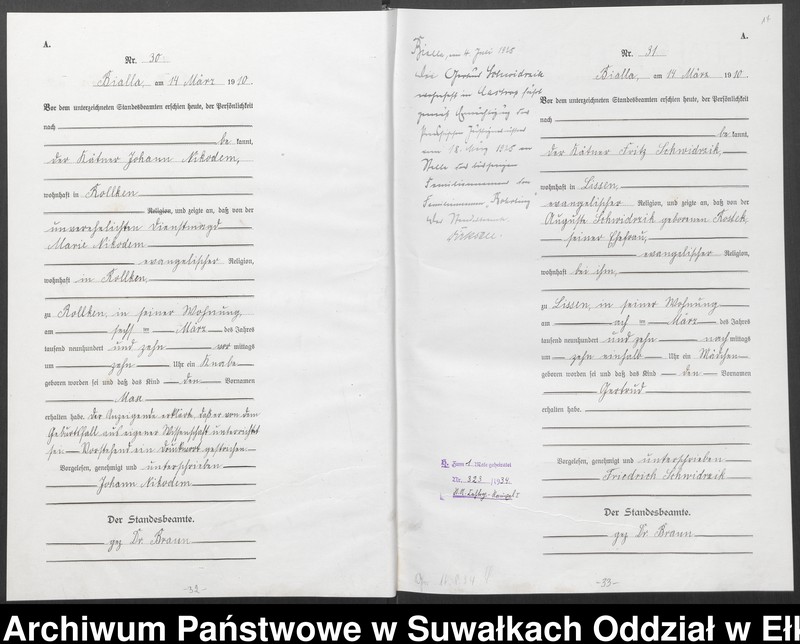 A.
Nr. 30.
Bialla, am 14 März 1910.
Vor dem unterzeichneten Standesbeamten erschien heute, der Persönlichkeit
nach
be kannt,
der Kätner Johann Nikodem,
wohnhaft in Kollken
Religion, und zeigte an, daß von der
unverehelichten Dienstmagd
Marie Nikodem
evangelischer Religion,
wohnhaft in Kollken,
zu Kollken, in seiner Wohnung,
am sechsten März des Jahres
tausend neunhundert und zehn vor mittags
um zehn Uhr ein Knabe
geboren worden sei und daß das Kind den Vornamen
Max
erhalten habe. Der Anzeigende erklärt, daß er von dem
Geburtsfall aus eigener Wissenschaft unterrichtet
sei. Vorstehend ein Druckwort gestrichen.
Vorgelesen, genehmigt und unterschrieben
Johann Nikodem
Der Standesbeamte.
gez Dr. Braun
-32-
Bialla, am 4. Juli 1940
Der Gertrud Schwidrzik
wohnhaft in
gemäß Ermächtigung des
vom 18. 1940 an
Stelle des bisherigen
Familiennamens den
Familiennamen
Der Standesbeamte
1 Male geheiratet
Nr. 323 /1934
A.
Nr. 31
Bialla, am 14 März 1910.
Vor dem unterzeichneten Standesbeamten erschien heute, der Persönlichkeit
nach
be kannt,
der Kätner Fritz Schwidrzik,
wohnhaft in Lissen,
evangelischer Religion, und zeigte an, daß von der
Auguste Schwidrzik geborenen Kossek,
seiner Ehefrau,
evangelischer Religion,
wohnhaft bei ihm,
zu Lissen, in seiner Wohnung
am achten März des Jahres
tausend neunhundert und zehn nach mittags
um zehn einhalb Uhr ein Mädchen
geboren worden sei und daß das Kind den Vornamen
Gertrud
erhalten habe.
Vorgelesen, genehmigt und unterschrieben
Friedrich Schwidrzik
Der Standesbeamte.
gez Dr. Braun
-33-
Archiwum Państwowe w Suwałkach Oddział w Eł